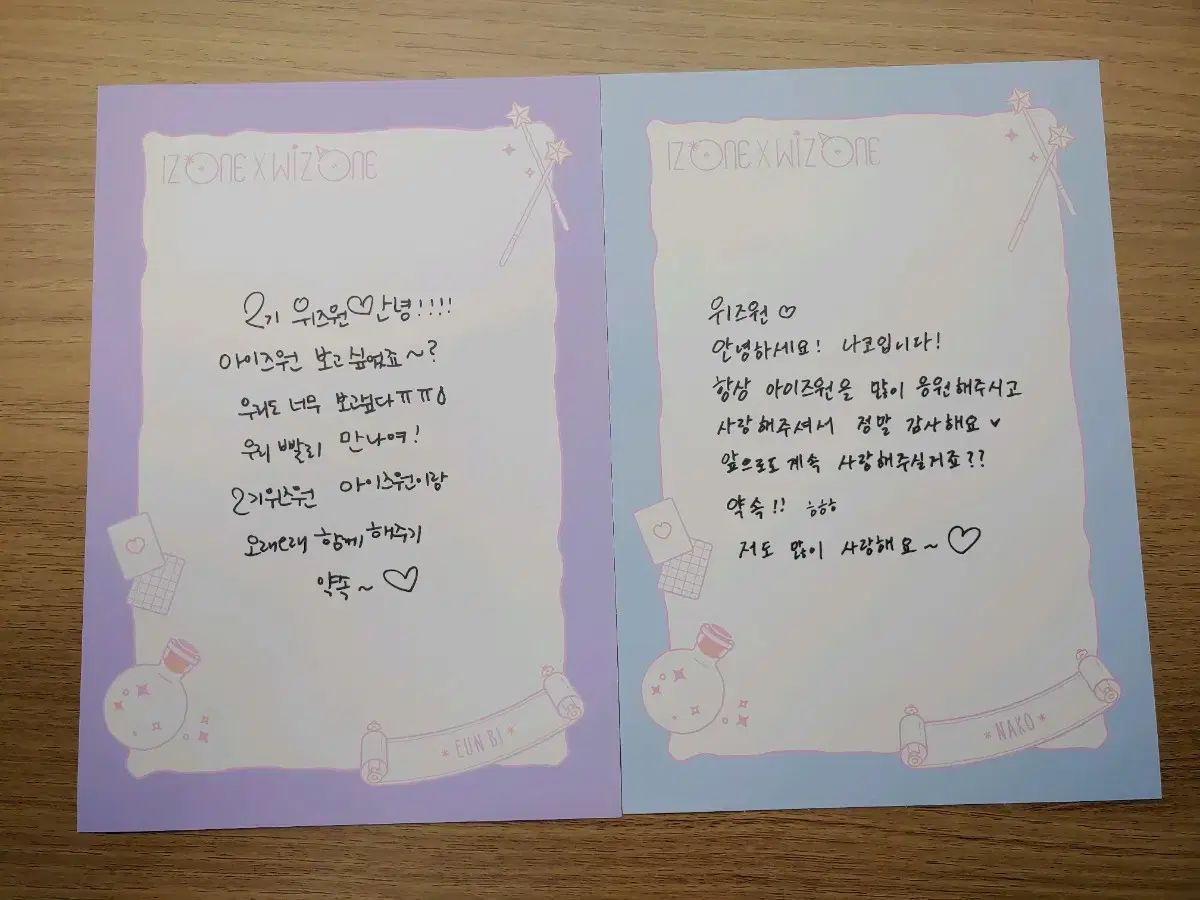 IZ*ONE X WIZ*ONE
2기 위즈원♡안녕!!!!
아이즈원 보고싶었죠~?
우리도 너무 보고싶다ㅠㅠ
우리 빨리 만나여!
2기위즈원 아이즈원이랑
오래오래 함께해주기
약속~ ♡
*EUN BI*
IZ*ONE X WIZ*ONE
위즈원 ♡
안녕하세요! 나코입니다!
항상 아이즈원을 많이 응원해주시고
사랑해주셔서 정말 감사해요♥
앞으로도 계속 사랑해주실거죠??
약속!! ㅎㅎㅎ
저도 많이 사랑해요~ ♡
*NAKO*